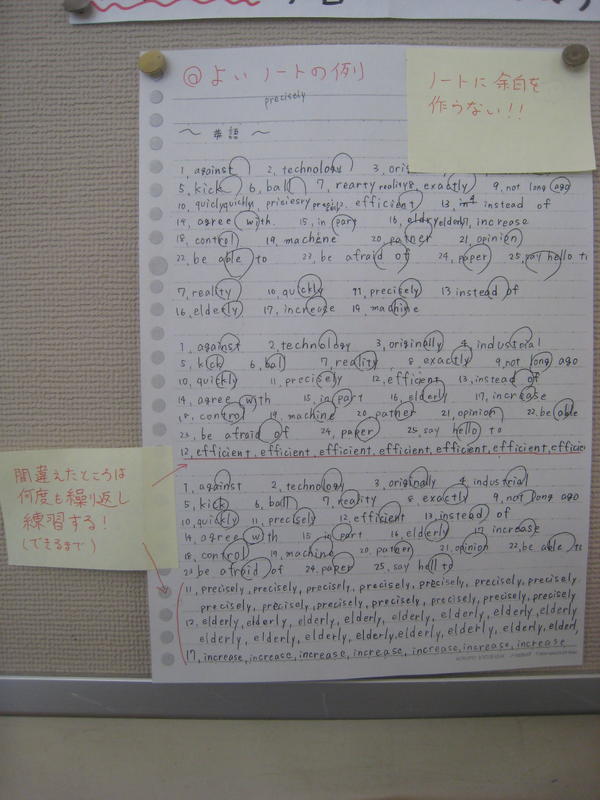 @よいノートの例
precisely
ノートに余白を
作らない!!
~ 英語 ~
1, against 2, technology 3,
5, kick 6, ball 7, rearty reality 8, exactly 9, not long ago
10, quiclyquickly, efficient 13, instead of
14, agree with. 15, in part 16, eldry elderly 17, increase
18, control 19, machine 20, patner 21, opinion
22, be able to 23, be afraid of 24, paper 25, say hello to
7, reality 10, quickly 11, precisely 13 instead of
16, elderly 17, increase 19, machine
1, against 2, technology 3, originally 4, industrial
5, kick 6, ball 7, reality 8, exactly 9, not long ago
10, quickly 11, precisely 12, efficient 13, instead of
14, agree with 15, in part 16, elderly 17, increase
18, control 19, machine 20, patner 21, opinion 22, be able
23, be afraid of 24, paper 25, say hello to
12, efficient, efficient, efficient, efficient, efficient, efficient, efficie
間違えたところは
何度も繰り返し
練習する!
(できるまで)
1, against 2, technology 3, originally 4, industrial
5, kick 6, ball 7, reality 8, exactly 9, not long ago
10, quickly 11, precisely 12, efficient 13, instead of
14, agree with 15, in part 16, elderly 17, increase
18, control 19, machine 20, patner 21, opinion 22, be able to
23, be afraid of 24, paper 25, say hello to
11, precisely, precisely, precisely, precisely, precisely, precisely, precisely
precisely, precisely, precisely, precisely, precisely, precisely, precisely
12, elderly, elderly, elderly, elderly, elderly, elderly, elderly, elderly
elderly, elderly, elderly, elderly, elderly, elderly, elderly, elderly,
17, increase, increase, increase, increase, increase, increase, increase